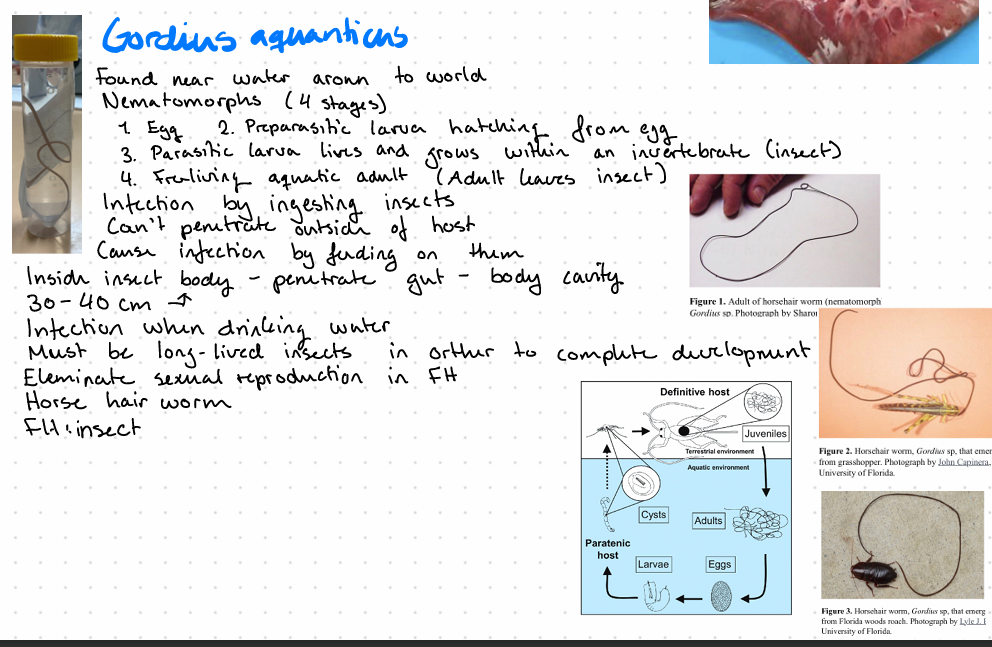 Gordius aquanticus
Found near water aroun to world
Nematomorphs (4 stages)
1. Egg 2. Preparasitic larva hatching from egg
3. Parasitic larva lives and grows within an invertebrate (insect)
4. Freeliving aquatic adult (Adult leaves insect)
Infection by ingesting insects
Can't penetrate outside of host
Cause infection by feeding on them
Inside insect body - penetrate gut - body cavity
30-40 cm
Infection when drinking water
Must be long-lived insects in orther to complete development
Eleminate sexual reproduction in FH
Horse hair worm
FH: insect
Figure 1. Adult of horsehair worm (nematomorph
Gordius sp. Photograph by Sharon
Definitive host
Juveniles
Terrestrial environment
Aquatic environment
Cysts
Adults
Paratenic
host
Larvae
Eggs
Figure 2. Horsehair worm, Gordius sp, that emer
from grasshopper. Photograph by John Capinera,
University of Florida.
Figure 3. Horsehair worm, Gordius sp, that emerg
from Florida woods roach. Photograph by Lyle J. I
University of Florida.